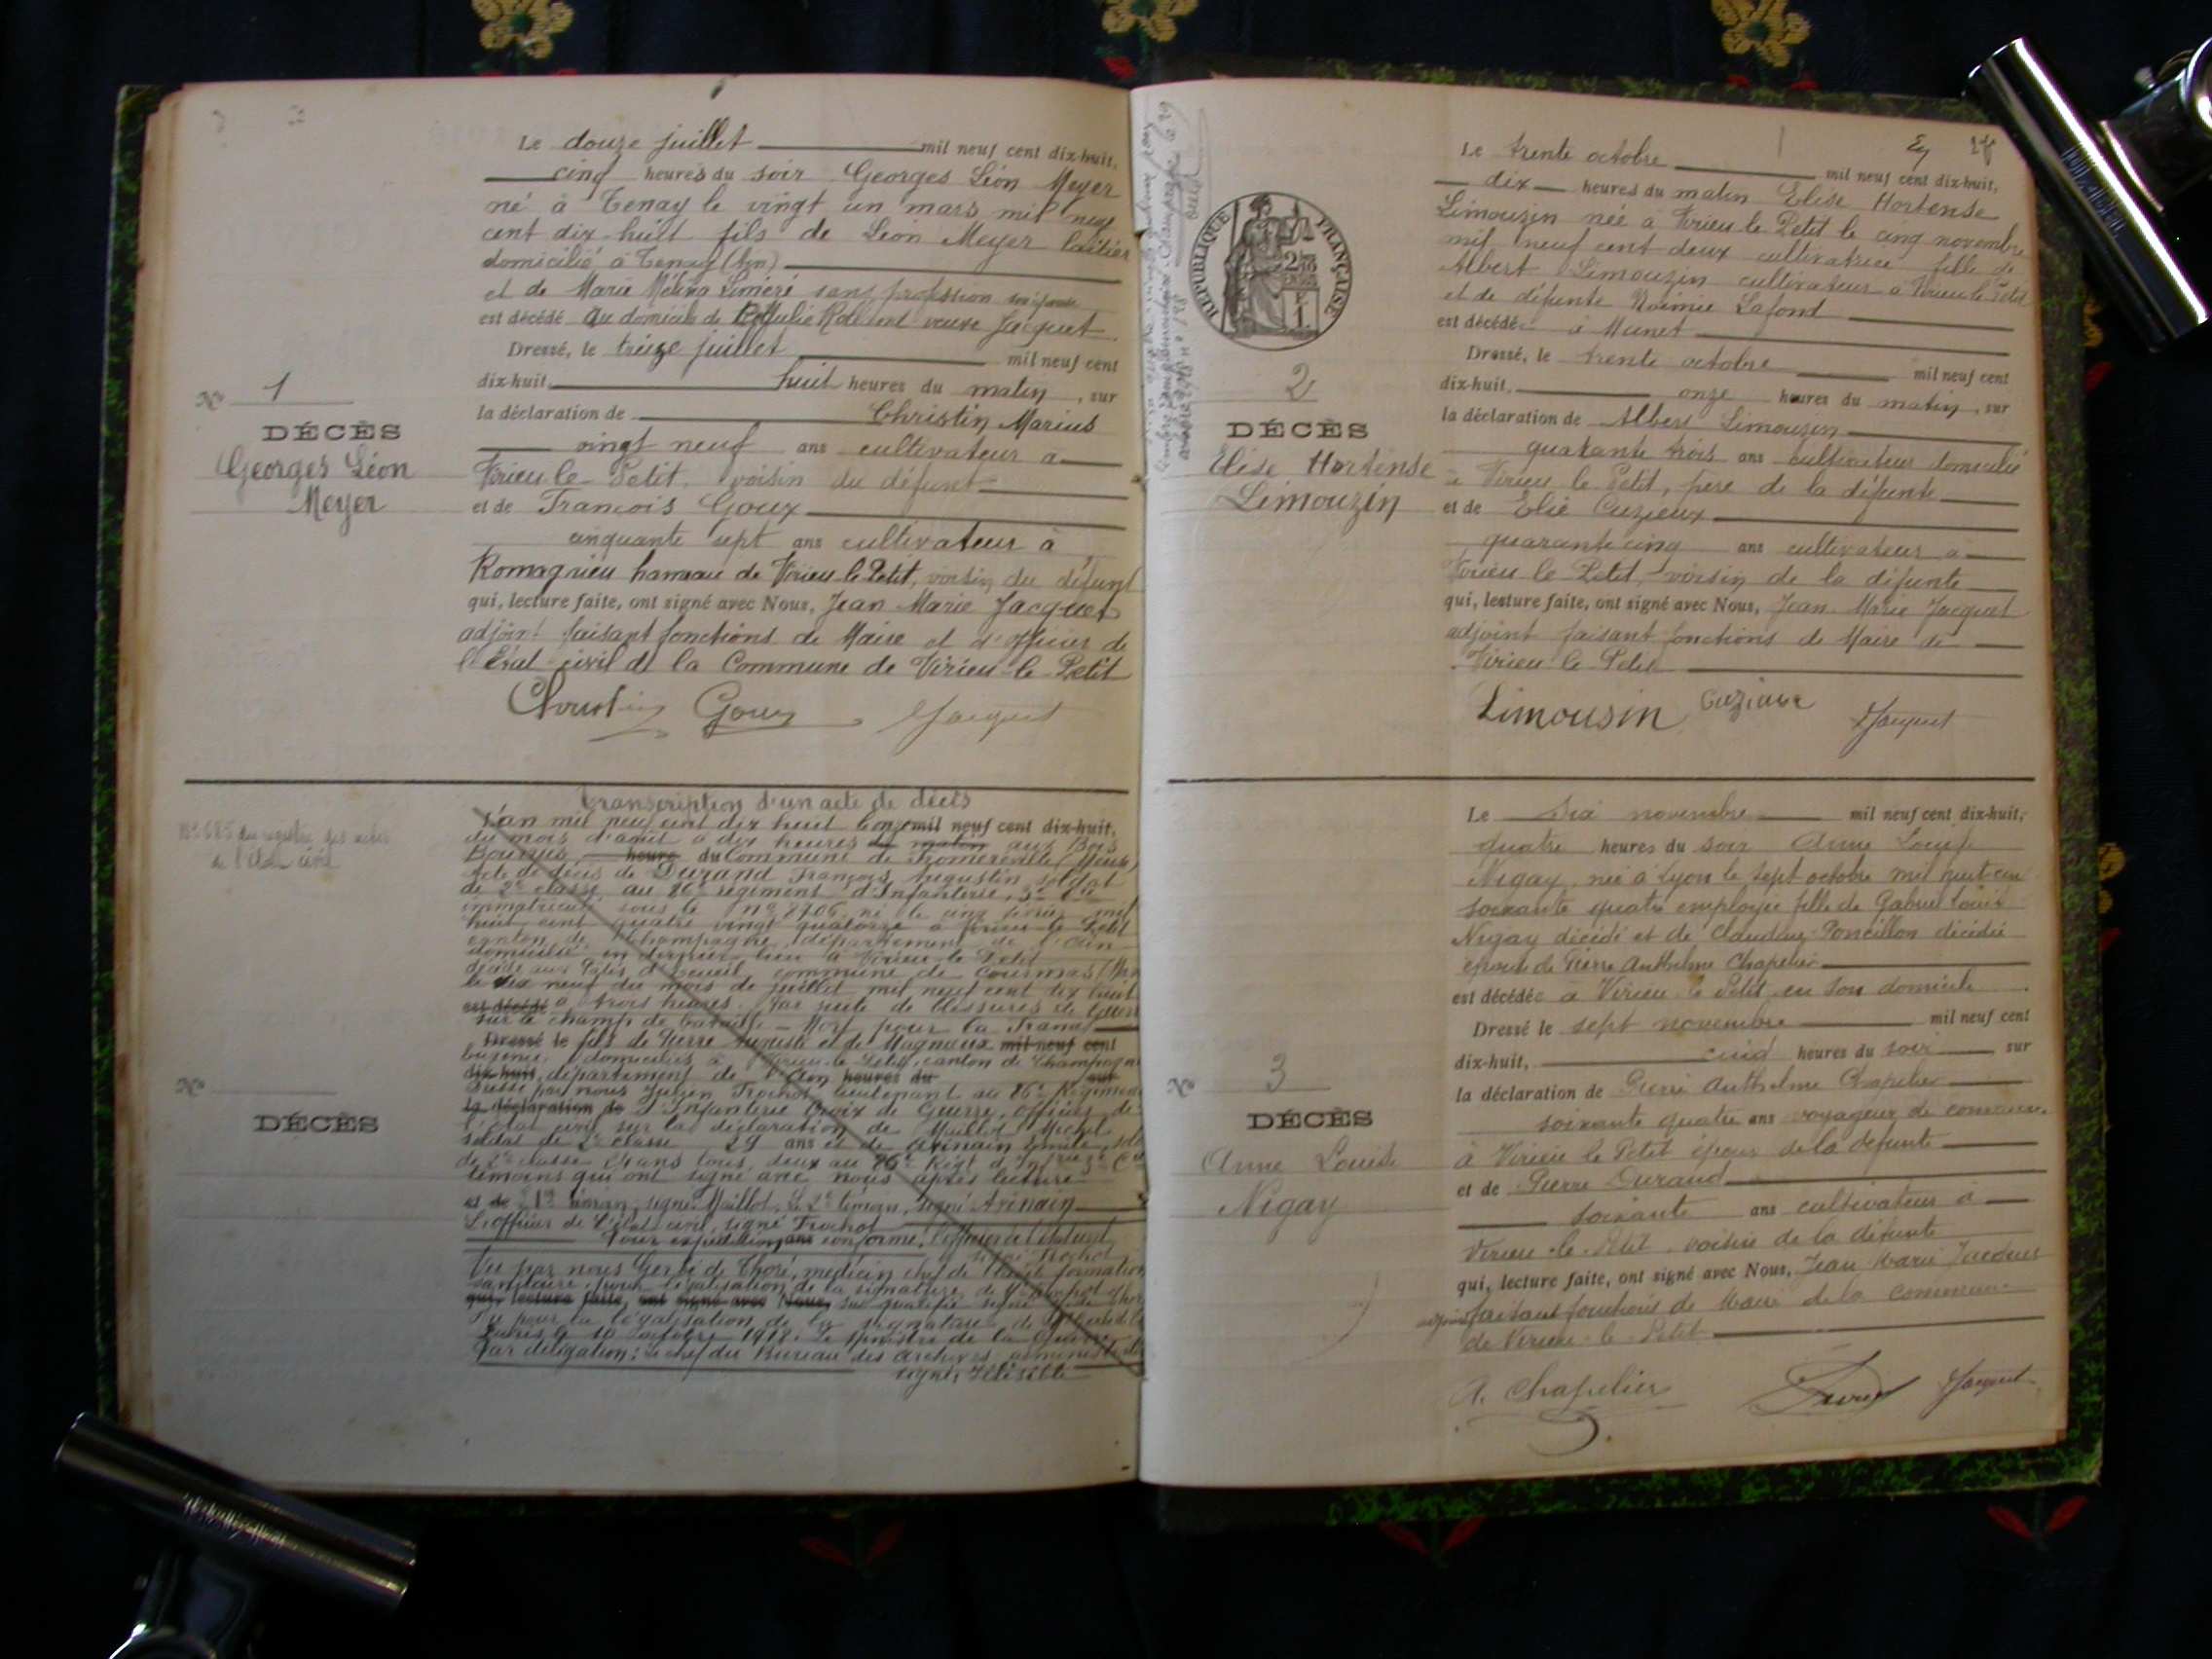 Le douze juillet mil neuf cent dix-huit,
cinq heures du soir Georges Léon Meyer
né à Tenay le vingt un mars mil neuf
cent dix-huit fils de Léon Meyer laitier
domicilié à Tenay (Ain)
et de Marie Mélina sans profession
est décédé au domicile de Julie veuve Jacquet
Dressé, le treize juillet mil neuf cent
dix-huit, huit heures du matin, sur
la déclaration de Christin Marius
vingt neuf ans cultivateur à
Virieu-le-Petit, voisin du défunt
et de François Goux
cinquante sept ans cultivateur à
Romagnieu hameau de Virieu-le-Petit, voisin du défunt
qui, lecture faite, ont signé avec Nous, Jean Marie Jacquet
adjoint faisant fonctions de Maire et d'officier de
l'Etat-civil de la Commune de Virieu-le-Petit
Christin Goux Jacquet
No 1
DÉCÈS
Georges Léon
Meyer
Transcription d'un acte de décès
du registre des actes
de l'état civil
L'an mil neuf cent dix huit le onze mil neuf cent dix-huit,
du mois d'août à dix heures du matin aux Bois
Bourrus heure du Commune de Fromereville (Meuse)
Acte de décès de Durand François Augustin soldat
de 2e classe au 86e régiment d'Infanterie, 3e Cie
immatriculé sous le no 8706 né le cinq février mil
huit cent quatre vingt quatorze à Virieu le Petit
canton de Champagne département de l'Ain
domicilié en dernier lieu à Virieu le Petit
décédé aux commune de Courmas
le dix neuf du mois de juillet mil neuf cent dix huit
est décédé à trois heures. Par suite de blessures de guerre
sur le champ de bataille - Mort pour la France
Dressé le fils de Pierre et de Magnoux mil neuf cent
domiciliés à Virieu-le-Petit, canton de Champagne
dix-huit, département de l'Ain heures du sur
Dressé par nous Julien Trochot lieutenant au 86e Régiment
la déclaration de d'Infanterie Croix de Guerre, officier de
l'état civil sur la déclaration de Maillot Michel
soldat de 2e classe 29 ans et de Arinain Emile
de 2e classe 24 ans tous deux au 86e Régt d'Infrie 3e Cie
témoins qui ont signé avec nous après lecture
et de 1er témoin, signé Maillot. Le 2e témoin, signé Arinain
L'officier de l'état-civil, signé Trochot
Pour expédition ans conforme, l'officier de l'état civil
signé Trochot
Vu par nous de Thoré, médecin chef de formation
sanitaire, pour légalisation de la signature de Mr Trochot
qui, lecture faite, ont signé avec Nous, sus qualifié signé
Vu pour la légalisation de la signature de
Paris le 10 octobre 1918. Le Ministre de la Guerre
Par délégation: Le chef du Bureau des Archives administratives
signé, Illisible
No
DÉCÈS
RÉPUBLIQUE FRANÇAISE
Le trente octobre mil neuf cent dix-huit,
dix heures du matin Elise Hortense
Limouzin née à Virieu le Petit le cinq novembre
mil neuf cent deux cultivatrice fille de
Albert Limouzin cultivateur à Virieu le Petit
et de défunte Noémie Lafond
est décédée à Munet
Dressé, le trente octobre mil neuf cent
dix-huit, onze heures du matin, sur
la déclaration de Albert Limouzin
quarante trois ans cultivateur domicilié
à Virieu le Petit, père de la défunte
et de Elie Cuzieux
quarante cinq ans cultivateur à
Virieu le Petit, voisin de la défunte
qui, lecture faite, ont signé avec Nous, Jean Marie Jacquet
adjoint faisant fonctions de Maire de
Virieu le Petit
Limousin Cuzieux Jacquet
2
DÉCÈS
Elise Hortense
Limouzin
Le six novembre mil neuf cent dix-huit,
quatre heures du soir Anne Louise
Nigay, née à Lyon le sept octobre mil huit cent
soixante quatre employée fille de Gabriel Louis
Nigay décédé et de Claudine Poncillon décédée
épouse de Pierre Anthelme Chapelier
est décédée à Virieu le Petit en son domicile
Dressé le sept novembre mil neuf cent
dix-huit, cinq heures du soir sur
la déclaration de Pierre Anthelme Chapelier
soixante quatre ans voyageur de commerce
à Virieu le Petit époux de la défunte
et de Pierre Durand
soixante ans cultivateur à
Virieu-le-Petit, voisin de la défunte
qui, lecture faite, ont signé avec Nous, Jean Marie Jacquet
adjoint faisant fonctions de Maire de la commune
de Virieu-le-Petit
A. Chapelier Jacquet
No 3
DÉCÈS
Anne Louise
Nigay